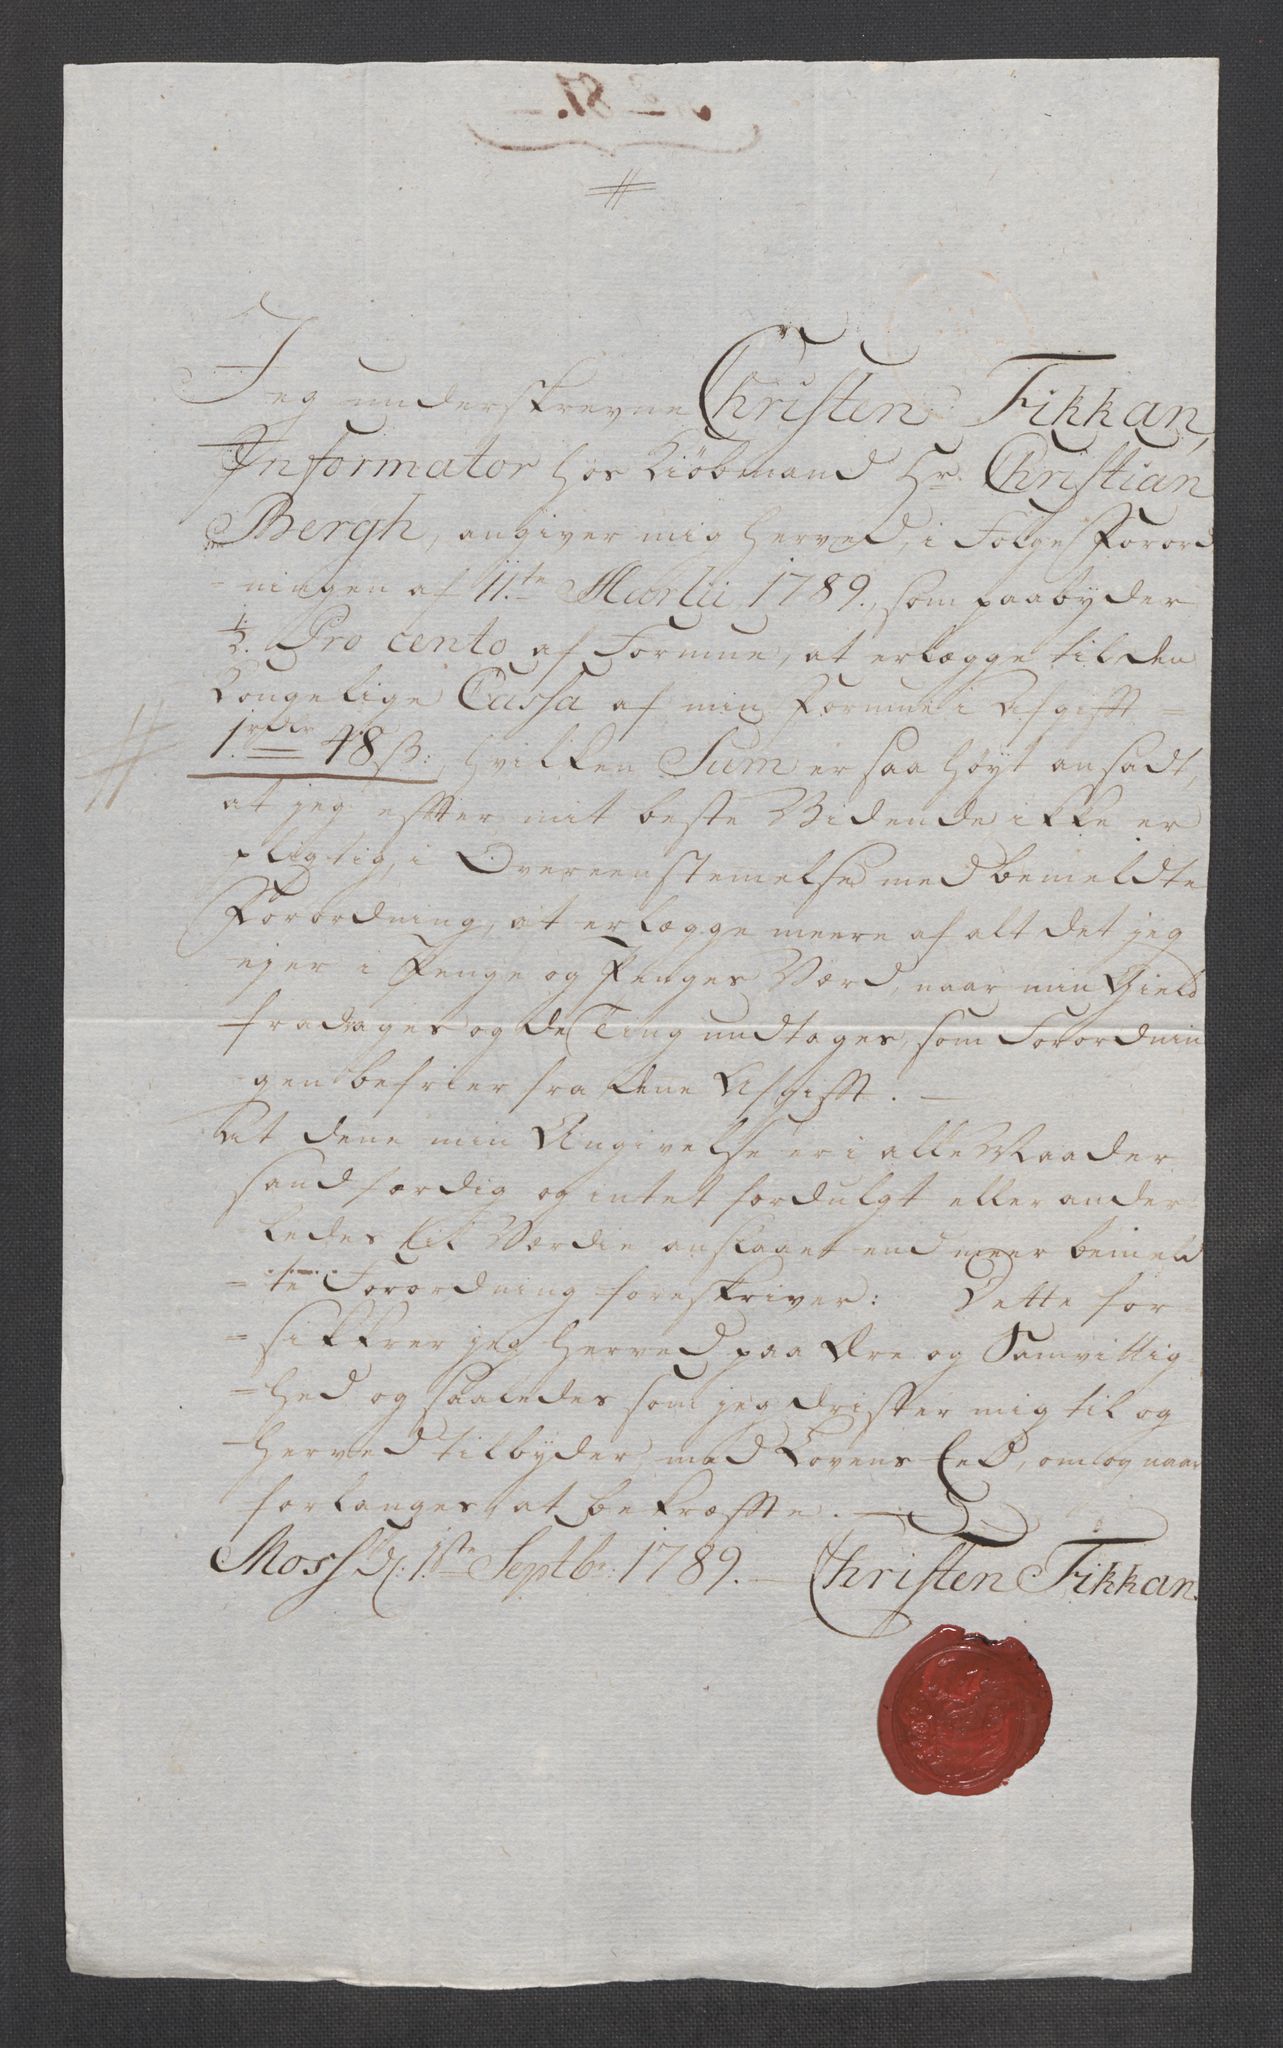 Jeg underskrevne Christen Fikkan,
Informator hos Kiöbmand Hr. Christian
Bergh, angiver mig herved, i Følge Forord
ningen af 11.te Martii 1789., som paabyder
1/2. Pro cento af Formue, at erlægge til den
Kongelige Cassa af min Formue i Afgifft =
1. rdlr 48 ß: hvilken Sum er saa høyt ansadt,
at jeg effter mit beste Vidende ikke er
pligtig, i Overeenstemelse med bemeldte
Forordning, at erlægge meere af alt det jeg
ejer i Penge og Penges Værd, naar min Gield
fradrages og de Ting undtages, som Forordnin
gen befrier fra dene Afgifft. —
At dene min Angivelse er i alle Maader
sandfærdig og intet fordulgt eller ander-
ledes til Værdie anslaaet end meer bemeld
= te Forordning foreskriver: Dette for =
= sikkrer jeg herved paa Ære og Samvittig-
= hed og saaledes som jeg drister mig til og
herved tilbyder, med Lovens Eed, om og naar
forlanges, at bekræffte. —
Moss d. 1.ste Septbr: 1789. — Christen Fikkan.